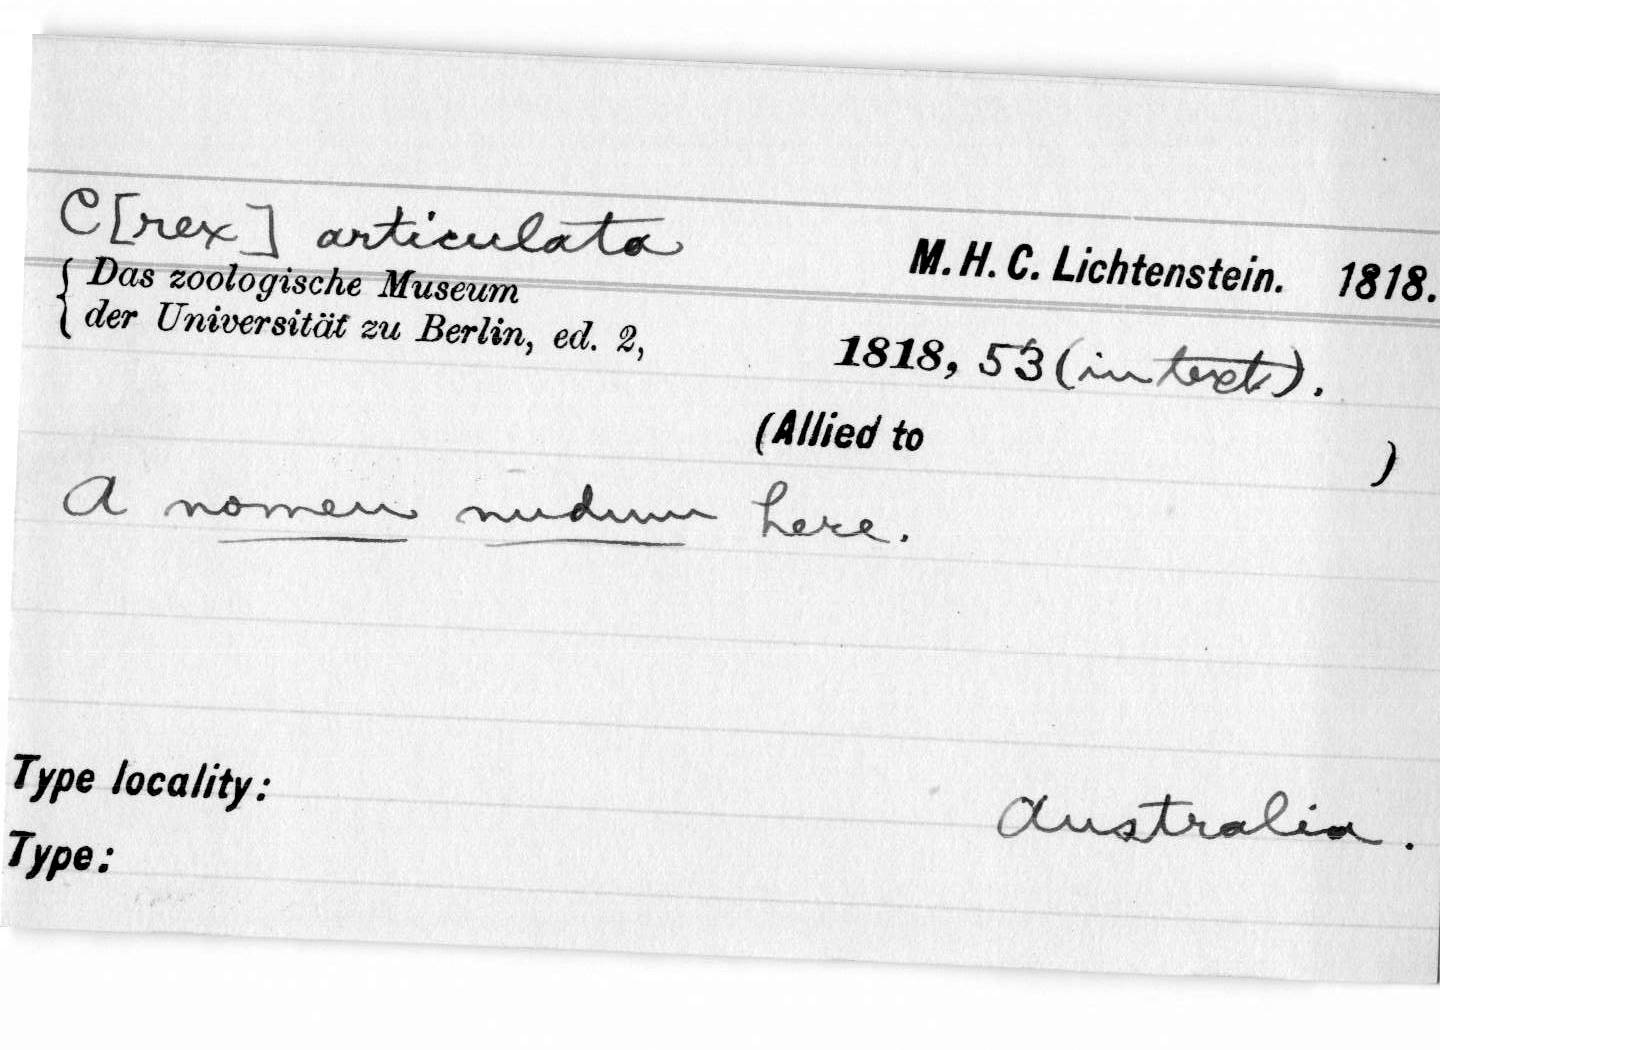 C[rex] articulata
M. H. C. Lichtenstein. 1818.
{ Das zoologische Museum
{ der Universität zu Berlin, ed. 2,
1818, 53 (in text).
(Allied to )
A nomen nudum here.
Type locality:
Australia.
Type: